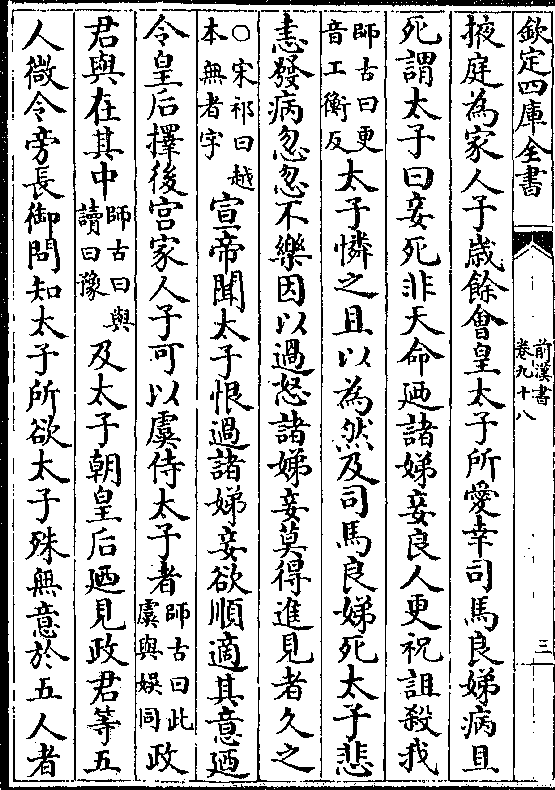 欽定四庫全書
前漢書
卷九十八
三
掖庭為家人子歲餘會皇太子所愛幸司馬良娣病且
死謂太子曰妾死非天命廼諸娣妾良人更祝詛殺我
師古曰更
音工衡反
太子憐之且以為然及司馬良娣死太子悲
恚發病忽忽不樂因以過怒諸娣妾莫得進見者久之
○宋祁曰越
本無者字
宣帝聞太子恨過諸娣妾欲順適其意廼
令皇后擇後宫家人子可以虞侍太子者
師古曰此
虞與娛同
政
君與在其中
師古曰與
讀曰豫
及太子朝皇后廼見政君等五
人微令旁長御問知太子所欲太子殊無意於五人者